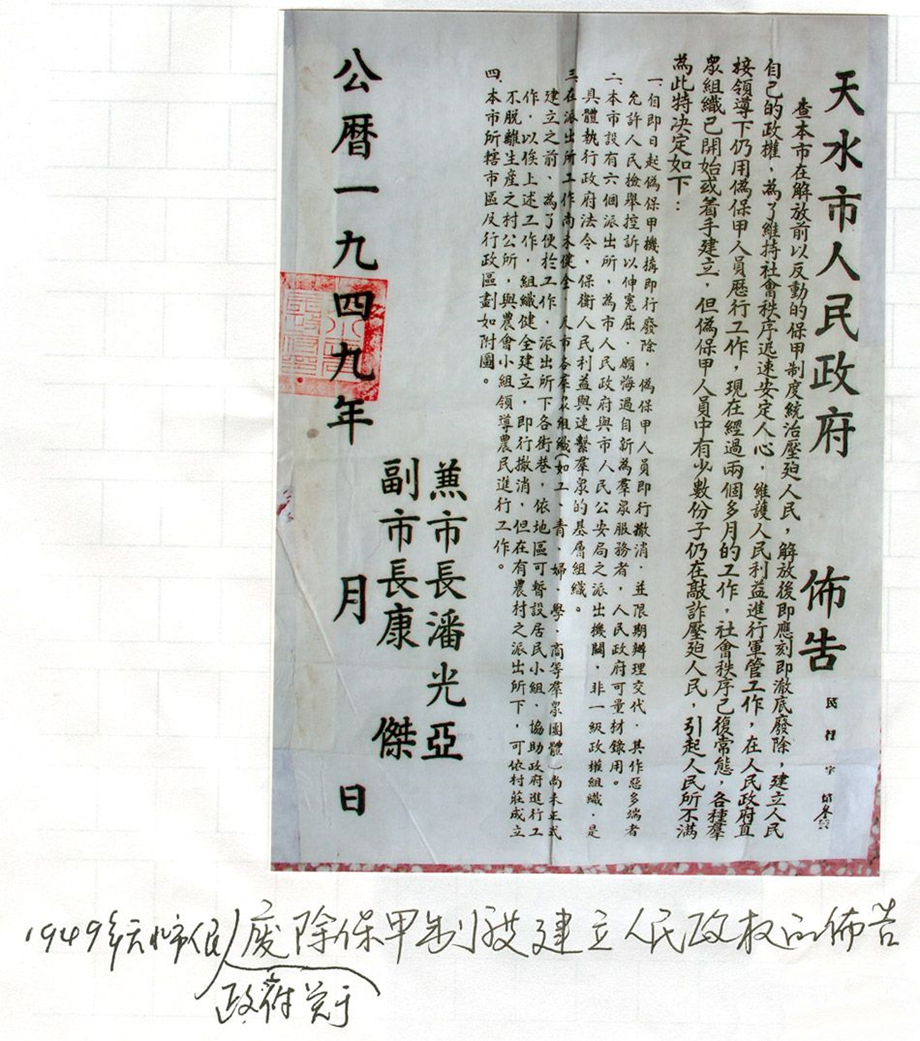 天水市人民政府 佈告
民 行 字 第叁號
查本市在解放前以反動的保甲制度統治壓廹人民，解放後即應刻即澈底廢除，建立人民
自己的政權，為了維持社會秩序迅速安定人心，維護人民利益進行軍管工作，在人民政府直
接領導下仍用偽保甲人員歷行工作，現在經過兩個多月的工作，社會秩序已復常態，各種羣
眾組織已開始或着手建立，但偽保甲人員中有少數份子仍在敲詐壓廹人民，引起人民所不滿
為此特決定如下：
一、自即日起偽保甲機構即行廢除，偽保甲人員即行撤消，並限期辦理交代，其作惡多端者
允許人民檢舉控訴以伸冤屈，願悔過自新為羣眾服務者，人民政府可量材錄用。
二、本市設有六個派出所，為市人民政府與市人民公安局之派出機關，非一級政權組織，是
具體執行政府法令，保衛人民利益與連繫羣眾的基層組織。
三、在派出所工作尚未健全，人市各羣眾組織（如工、青、婦、學、商等羣眾團體）尚未正式
建立之前，為了便於工作，派出所下各街巷，依地區可暫設居民小組，協助政府進行工
作，以俟上述工作，組織健全建立，即行撤消，但在有農村之派出所下，可依村莊成立
不脫離生產之村公所，與農會小組領導農民進行工作。
四、本市所轄市區及行政區劃如附圖。
兼市長潘光亞
副市長康 傑
公曆一九四九年 月 日
1949年天水市人民政府关于廢除保甲制度建立人民政权的佈告